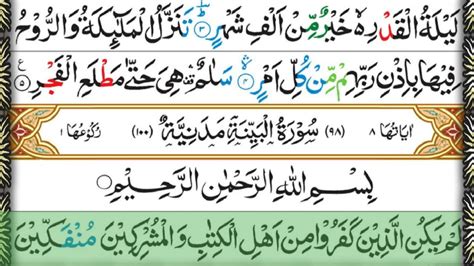 لَيْلَةُ الْقَدْرِ ۙ۬ خَيْرٌ مِّنْ اَلْفِ شَهْرٍ ؕ۳ تَنَزَّلُ الْمَلٰٓئِكَةُ وَالرُّوْحُ
فِيْهَا بِاِذْنِ رَبِّهِمْ ۚ مِّنْ كُلِّ اَمْرٍ ۙ۴ سَلٰمٌ ۛ۫ هِيَ حَتّٰى مَطْلَعِ الْفَجْرِ ۵ ع
اٰيَاتُهَا ۸ (۹۸) سُوْرَةُ الْبَيِّنَةِ مَدَنِيَّةٌ (۱۰۰) رُكُوْعُهَا ۱
بِسْمِ اللّٰهِ الرَّحْمٰنِ الرَّحِيْمِ
لَمْ يَكُنِ الَّذِيْنَ كَفَرُوْا مِنْ اَهْلِ الْكِتٰبِ وَالْمُشْرِكِيْنَ مُنْفَكِّيْنَ